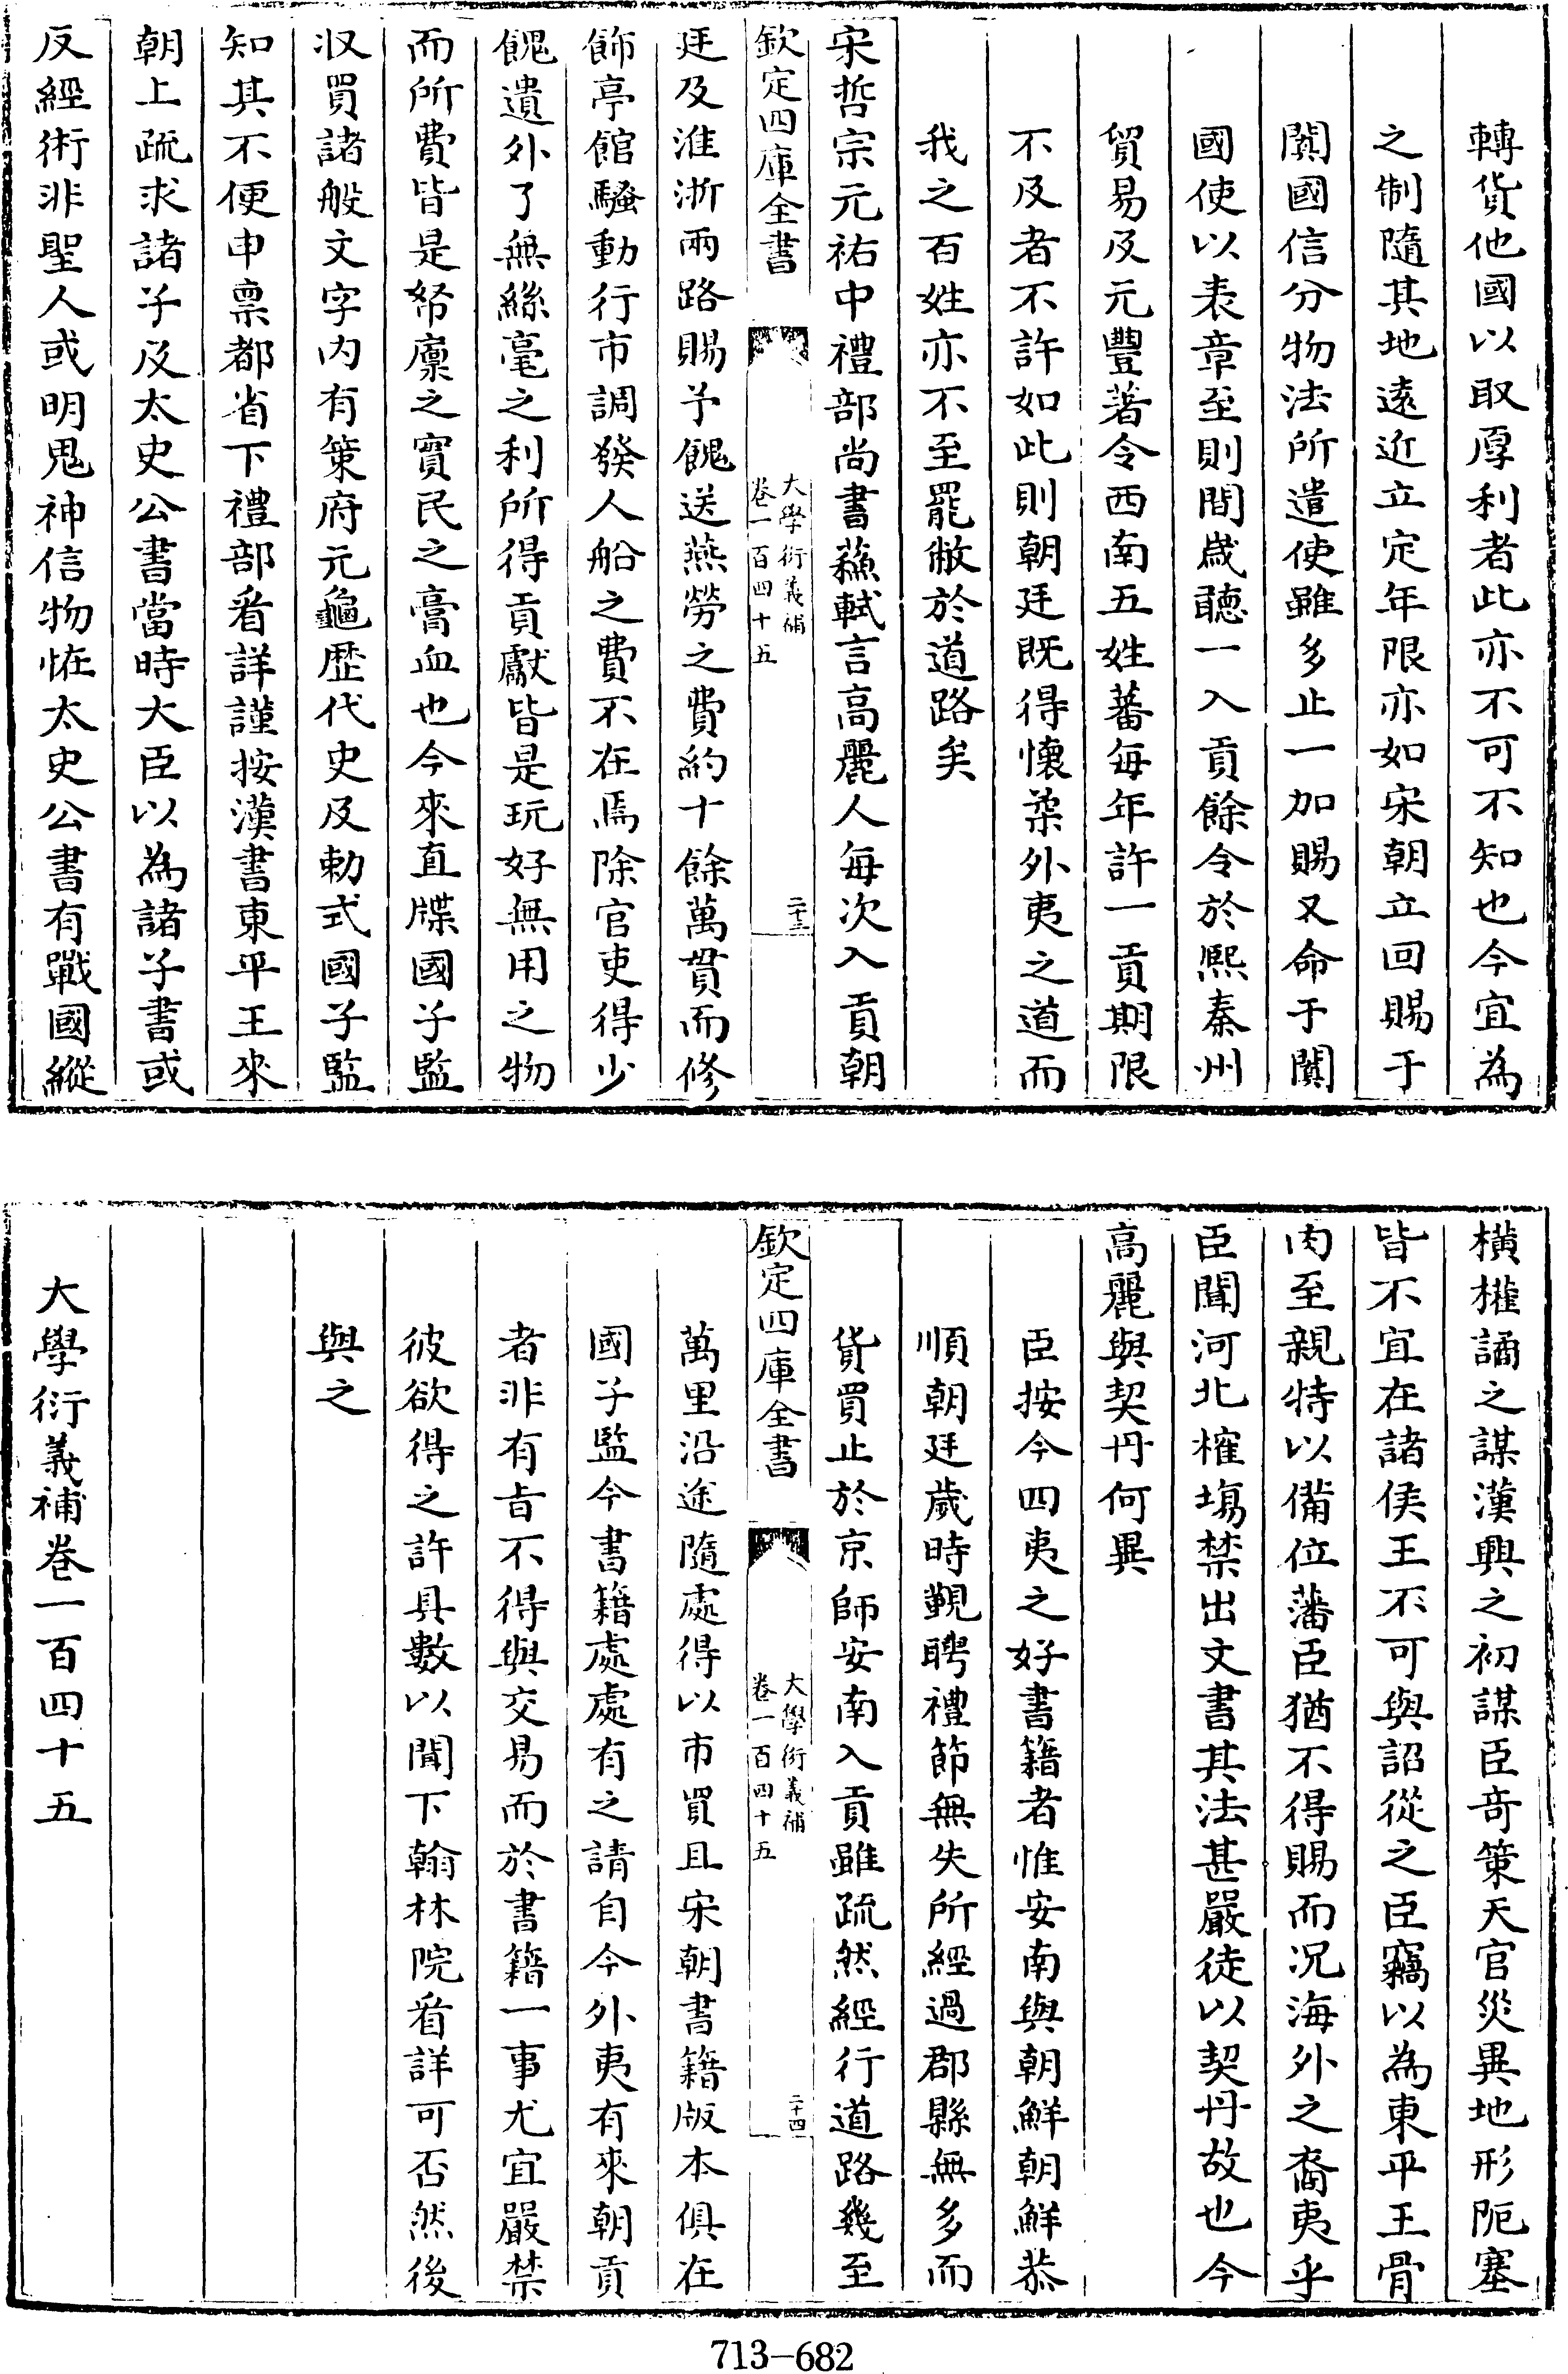 轉貨他國以取厚利者此亦不可不知也今宜為
之制隨其地遠近立定年限亦如宋朝立回賜于
闐國信分物法所遣使雖多止一加賜又命于闐
國使以表章至則間歲聽一入貢餘令於熙秦州
貿易及元豐著令西南五姓蕃每年許一貢期限
不及者不許如此則朝廷既得懷柔外夷之道而
我之百姓亦不至罷敝於道路矣
宋哲宗元祐中禮部尚書蘇軾言高麗人每次入貢朝
欽定四庫全書
大學衍義補
卷一百四十五
二十三
廷及淮浙兩路賜予餽送燕勞之費約十餘萬貫而修
飾亭館騷動行市調發人船之費不在焉除官吏得少
餽遺外了無絲毫之利所得貢獻皆是玩好無用之物
而所費皆是帑廩之實民之膏血也今來直牒國子監
収買諸般文字內有策府元龜歷代史及勅式國子監
知其不便申稟都省下禮部看詳謹按漢書東平王來
朝上疏求諸子及太史公書當時大臣以為諸子書或
反經術非聖人或明鬼神信物怪太史公書有戰國縱
橫權譎之謀漢興之初謀臣竒策天官災異地形阨塞
皆不宜在諸侯王不可與詔從之臣竊以為東平王骨
肉至親特以備位藩臣猶不得賜而况海外之裔夷乎
臣聞河北榷場禁出文書其法甚嚴徒以契丹故也今
高麗與契丹何異
臣按今四夷之好書籍者惟安南與朝鮮朝鮮恭
順朝廷歲時覲聘禮節無失所經過郡縣無多而
貨買止於京師安南入貢雖疏然經行道路幾至
欽定四庫全書
大學衍義補
卷一百四十五
二十四
萬里沿途隨處得以市買且宋朝書籍版本俱在
國子監今書籍處處有之請自今外夷有來朝貢
者非有旨不得與交易而於書籍一事尤宜嚴禁
彼欲得之許具數以聞下翰林院看詳可否然後
與之
大學衍義補卷一百四十五
713-682